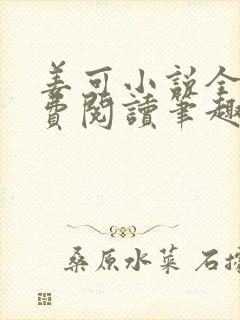 姜可小说全
费閱讀筆趣
桑原水菜 石